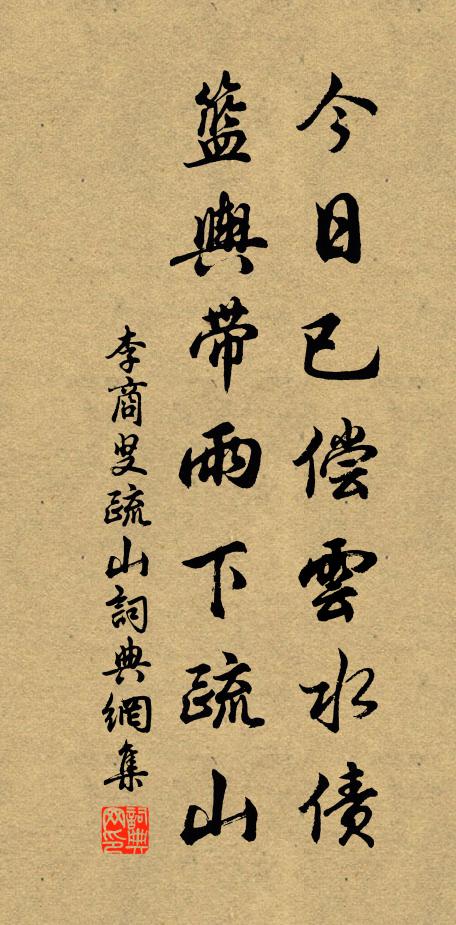 今日已偿雲水债
籃輿帶雨下疏山
李商叟疏山詞典網集
詞典網印